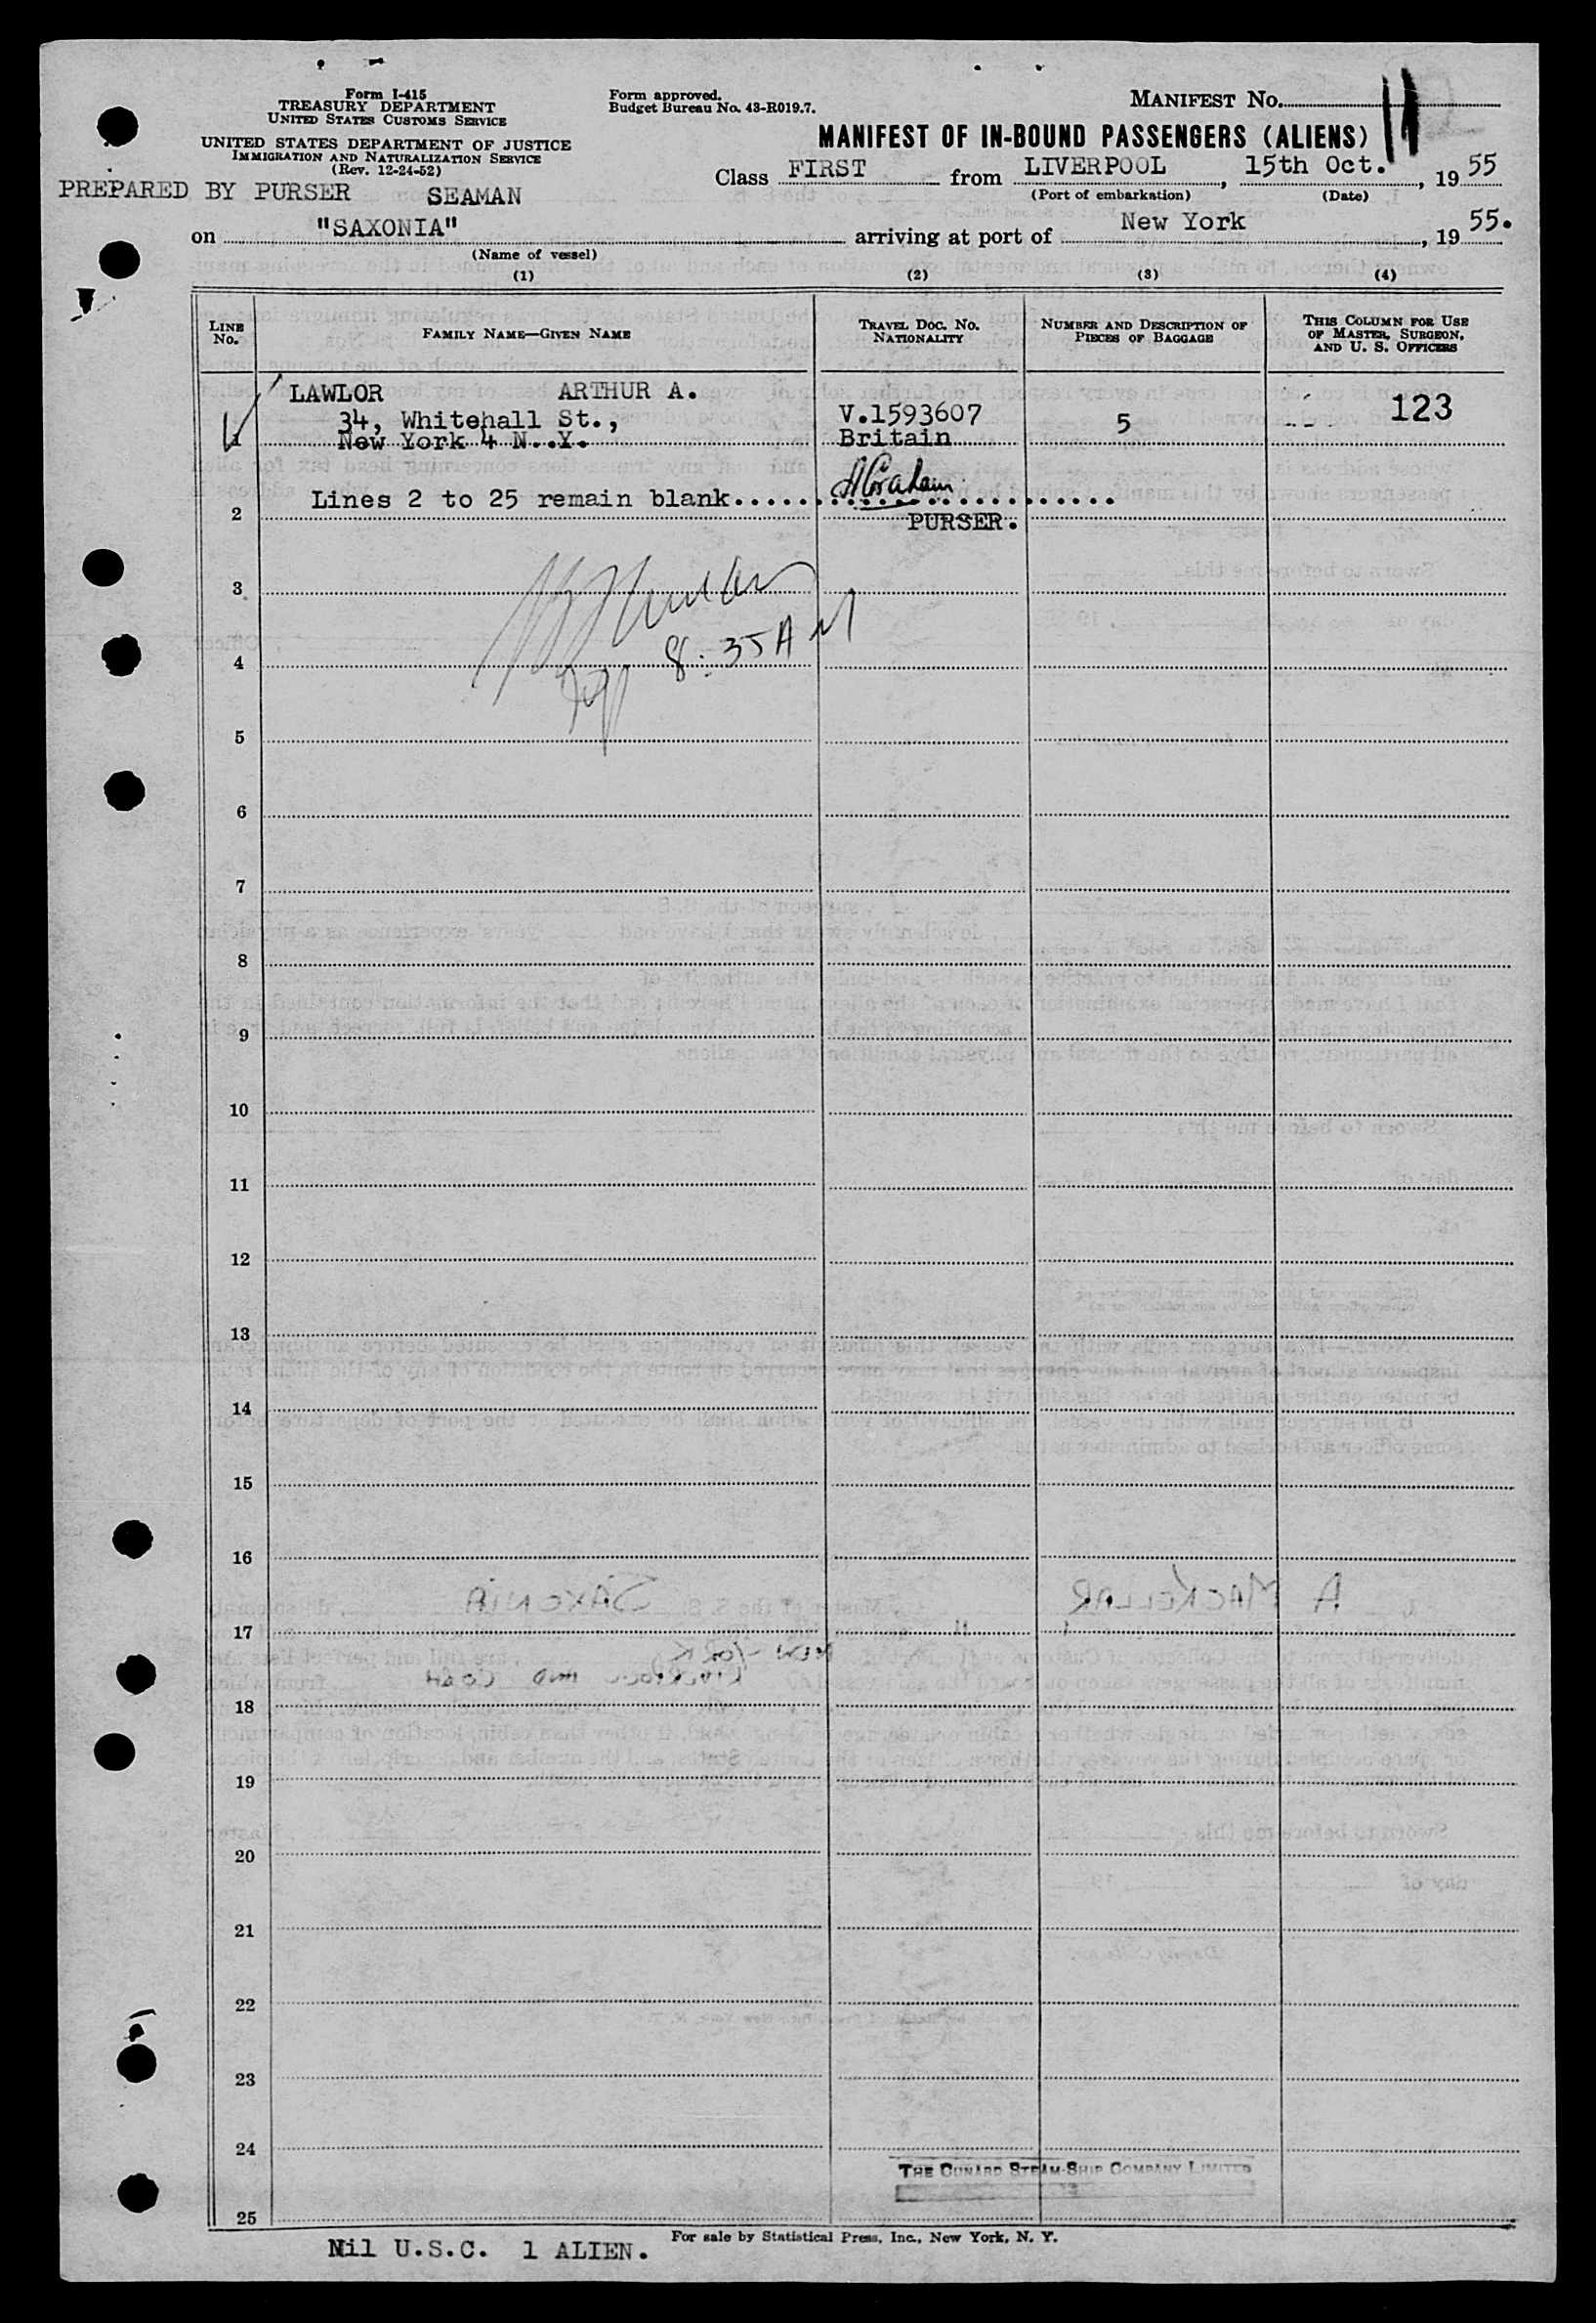 Form I-415
TREASURY DEPARTMENT
UNITED STATES CUSTOMS SERVICE
UNITED STATES DEPARTMENT OF JUSTICE
IMMIGRATION AND NATURALIZATION SERVICE
(Rev. 12-24-52)
Form approved.
Budget Bureau No. 43-R019.7.
MANIFEST No.
MANIFEST OF IN-BOUND PASSENGERS (ALIENS)
Class FIRST from LIVERPOOL, 15th Oct., 1955
(Port of embarkation) (Date)
PREPARED BY PURSER SEAMAN
on "SAXONIA" arriving at port of New York, 1955.
(Name of vessel)
(1) (2) (3) (4)
LINE No. FAMILY NAME—GIVEN NAME TRAVEL DOC. NO. NATIONALITY NUMBER AND DESCRIPTION OF PIECES OF BAGGAGE THIS COLUMN FOR USE OF MASTER, SURGEON, AND U. S. OFFICERS
LAWLOR ARTHUR A.
34, Whitehall St., V.1593607 5 123
1 New York 4 N..Y. Britain
AGraham
2 Lines 2 to 25 remain blank..........................
PURSER.
3
8:35 AM
4
5
6
7
8
9
10
11
12
13
14
15
16
17
18
19
20
21
22
23
24
THE CUNARD STEAM-SHIP COMPANY LIMITED
25
For sale by Statistical Press, Inc., New York, N. Y.
Nil U.S.C. 1 ALIEN.